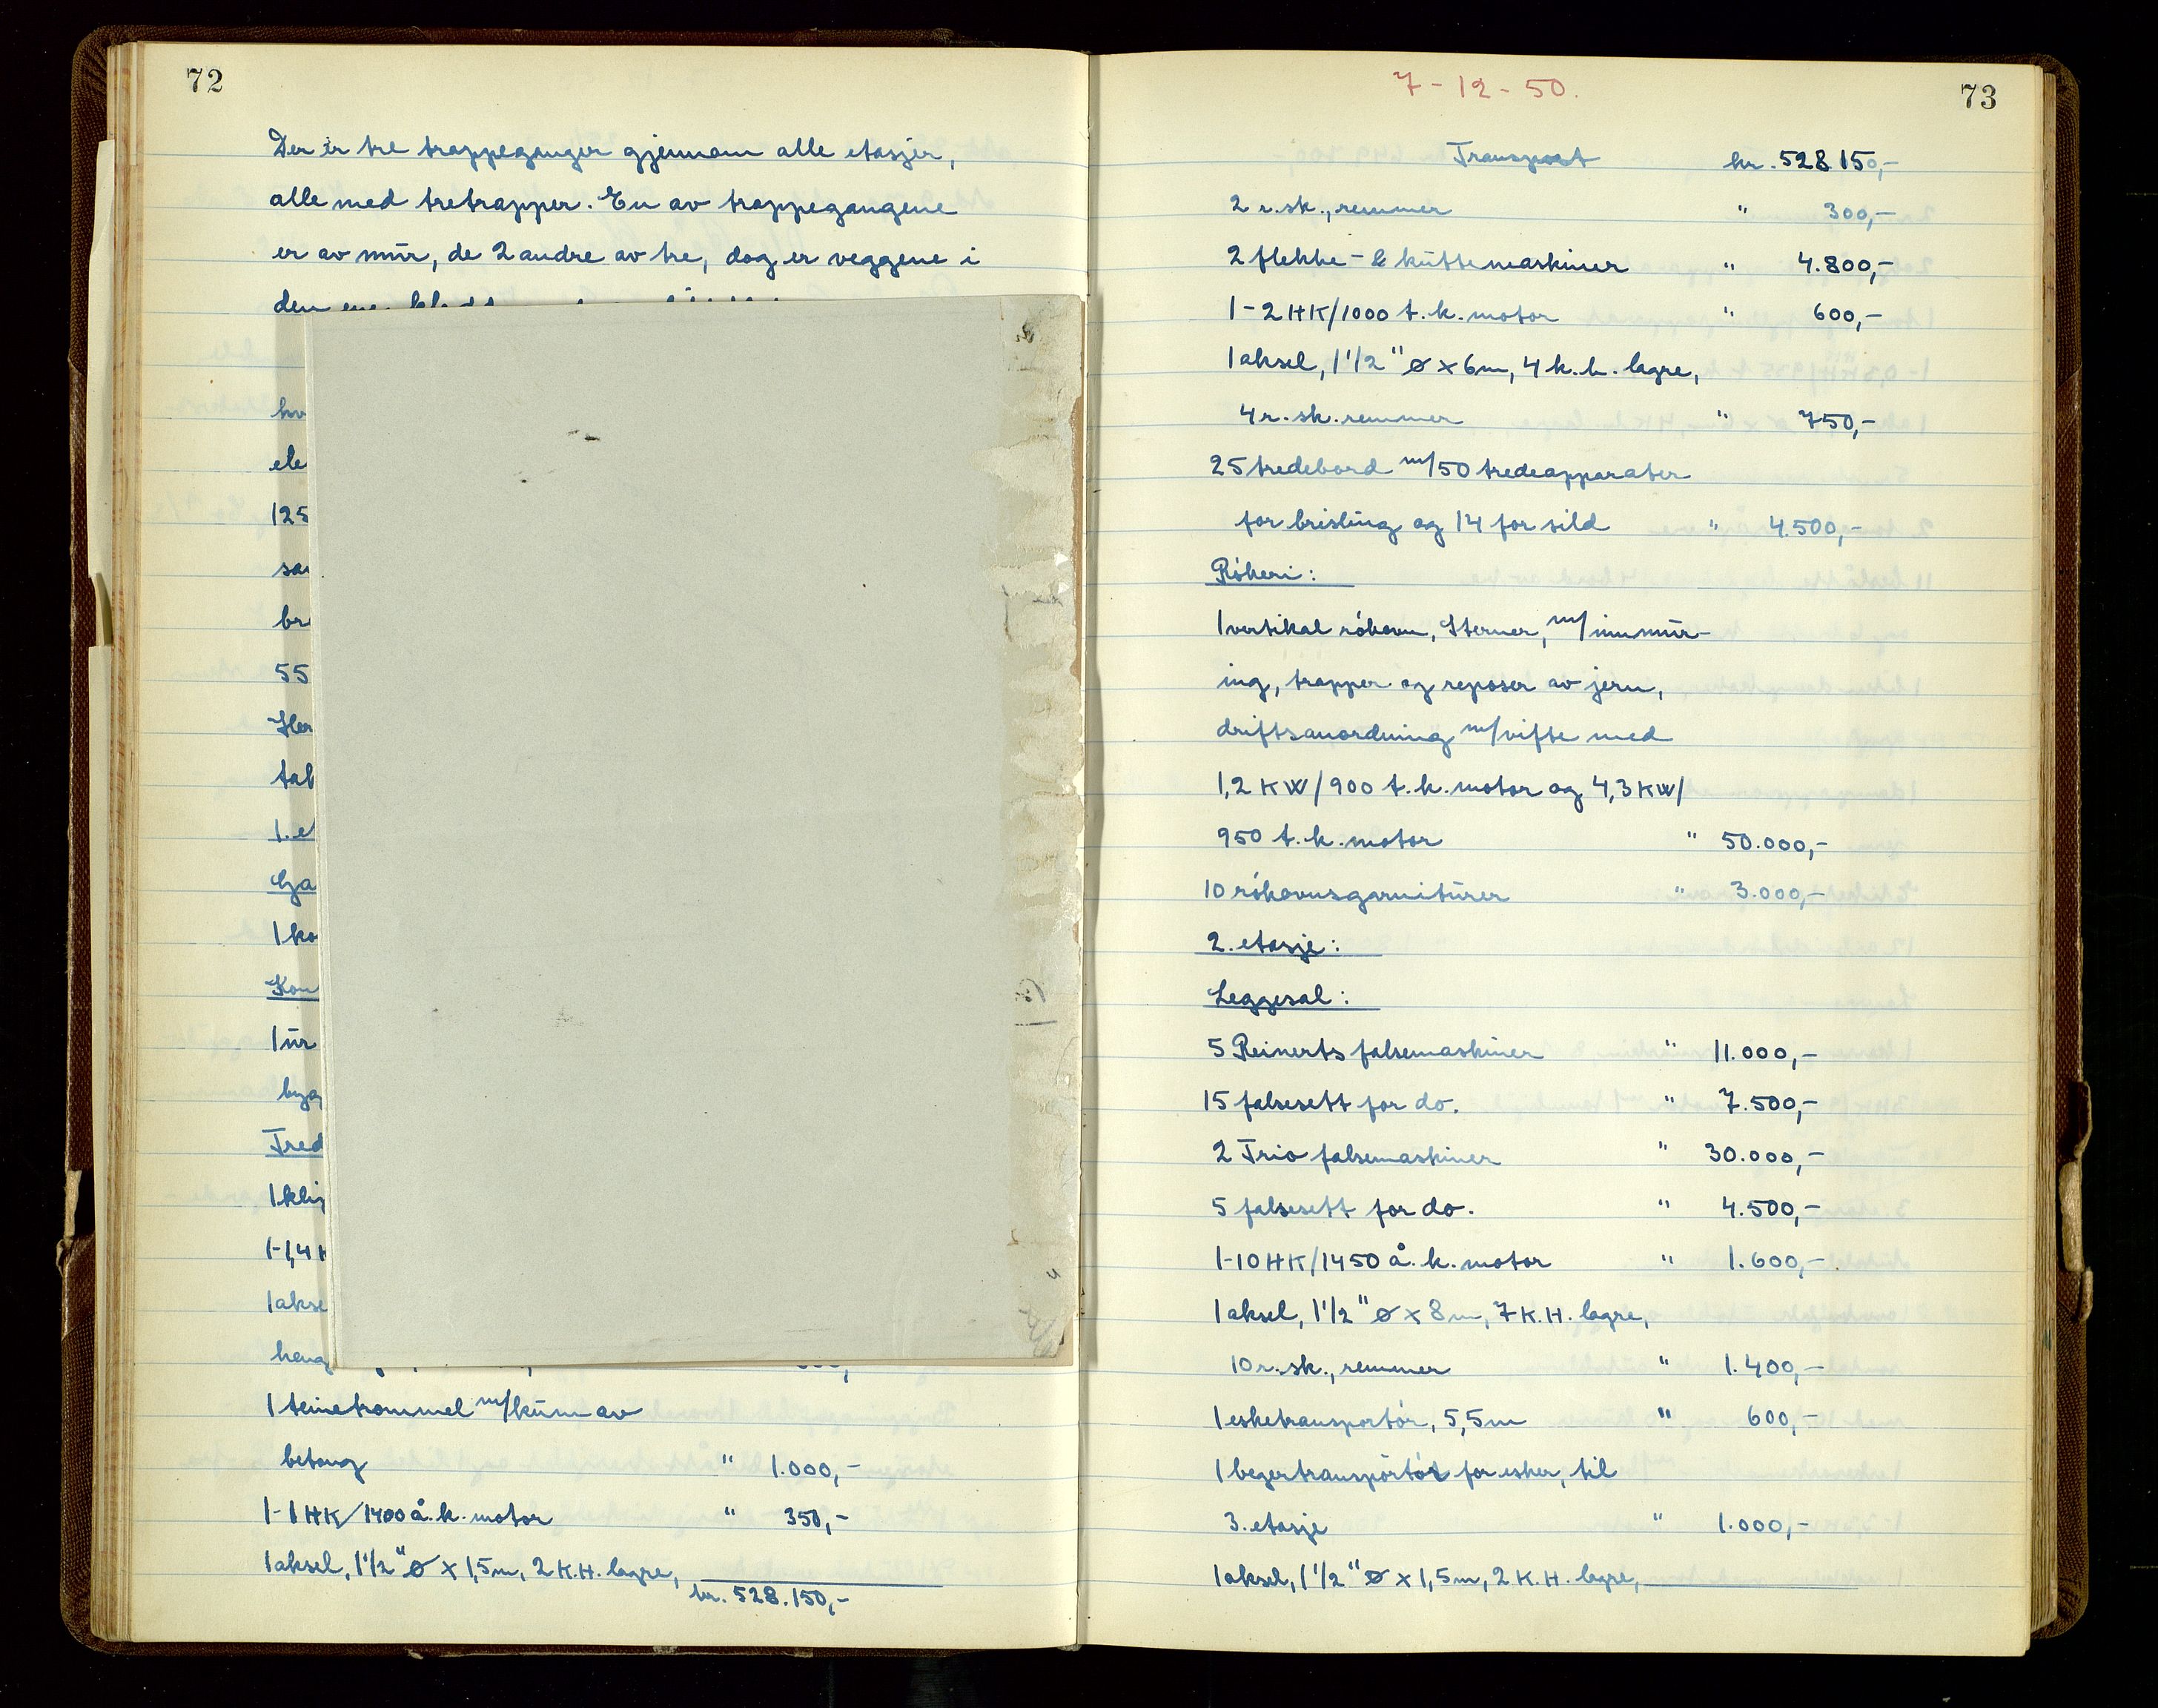 72
Der er tre trappeganger gjennom alle etasjer,
alle med tretrapper. En av trappegangene
er av mur, de 2 andre av tre, dog er veggene i
den ene
hv
ele
125
sa
br
55
Her
tak
1. e
Ga
1 ko
Kon
1 ur
byg
Tred
1 klip
1-1,4 H
1 akse
heng
1 teinetrommel m/kum av
betong " 1.000,-
1-1 HK/1400 å. k. motor " 350,-
1 aksel, 1 1/2" ø x 1,5 m, 2 K.H. lagre,
kr. 528.150,-
7-12-50.
73
Transport kr. 528.150,-
2 r.sk., remmer " 300,-
2 flekke- & kuttemaskiner " 4.800,-
1-2 HK/1000 t. k. motor " 600,-
1 aksel, 1 1/2" ø x 6m, 4 k.h. lagre,
4 r. sk. remmer " 750,-
25 tredebord m/50 tredeapparater
for brisling og 14 for sild " 4.500,-
Rökeri:
1 vertikal rökovn, Sterner, m/innmur-
ing, trapper og reposer av jern,
driftsanordning m/vifte med
1,2 KW/900 t. k. motor og 4,3 KW/
950 t. k. motor " 50.000,-
10 rökovnsgarniturer " 3.000,-
2. etasje:
Leggesal:
5 Reinerts falsemaskiner " 11.000,-
15 falsesett for do. " 7.500,-
2 Trio falsemaskiner " 30.000,-
5 falsesett for do. " 4.500,-
1-10 HK/1450 å. k. motor " 1.600,-
1 aksel, 1 1/2" ø x 8 m, 7 K.H. lagre,
10 r. sk., remmer " 1.400,-
1 esketransportör, 5,5 m " 600,-
1 begertransportör for esker, til
3. etasje " 1.000,-
1 aksel, 1 1/2" ø x 1,5 m, 2 K.H. lagre,